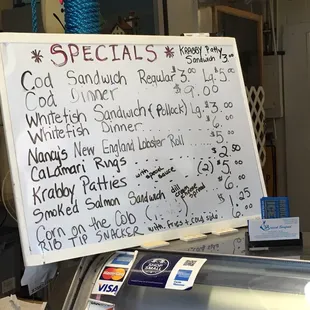 * SPECIALS *
KRABBY PATTY
SANDWICH $3.00
Cod Sandwich Regular $3.00 Lg. $5.00
Cod Dinner $9.00
Whitefish Sandwich (Pollock) Lg. $3.00
Whitefish Dinner 6.00
Nancy's New England Lobster Roll 5.00
CaLamari Rings with special sauce $2.50
Krabby Patties (2) 5.00
Smoked Salmon Sandwich dill spread 6.00
Corn on the Cob 1.25
RIB TIP SNACKER with fries + cold
MasterCard
VISA
SHOP SMALL